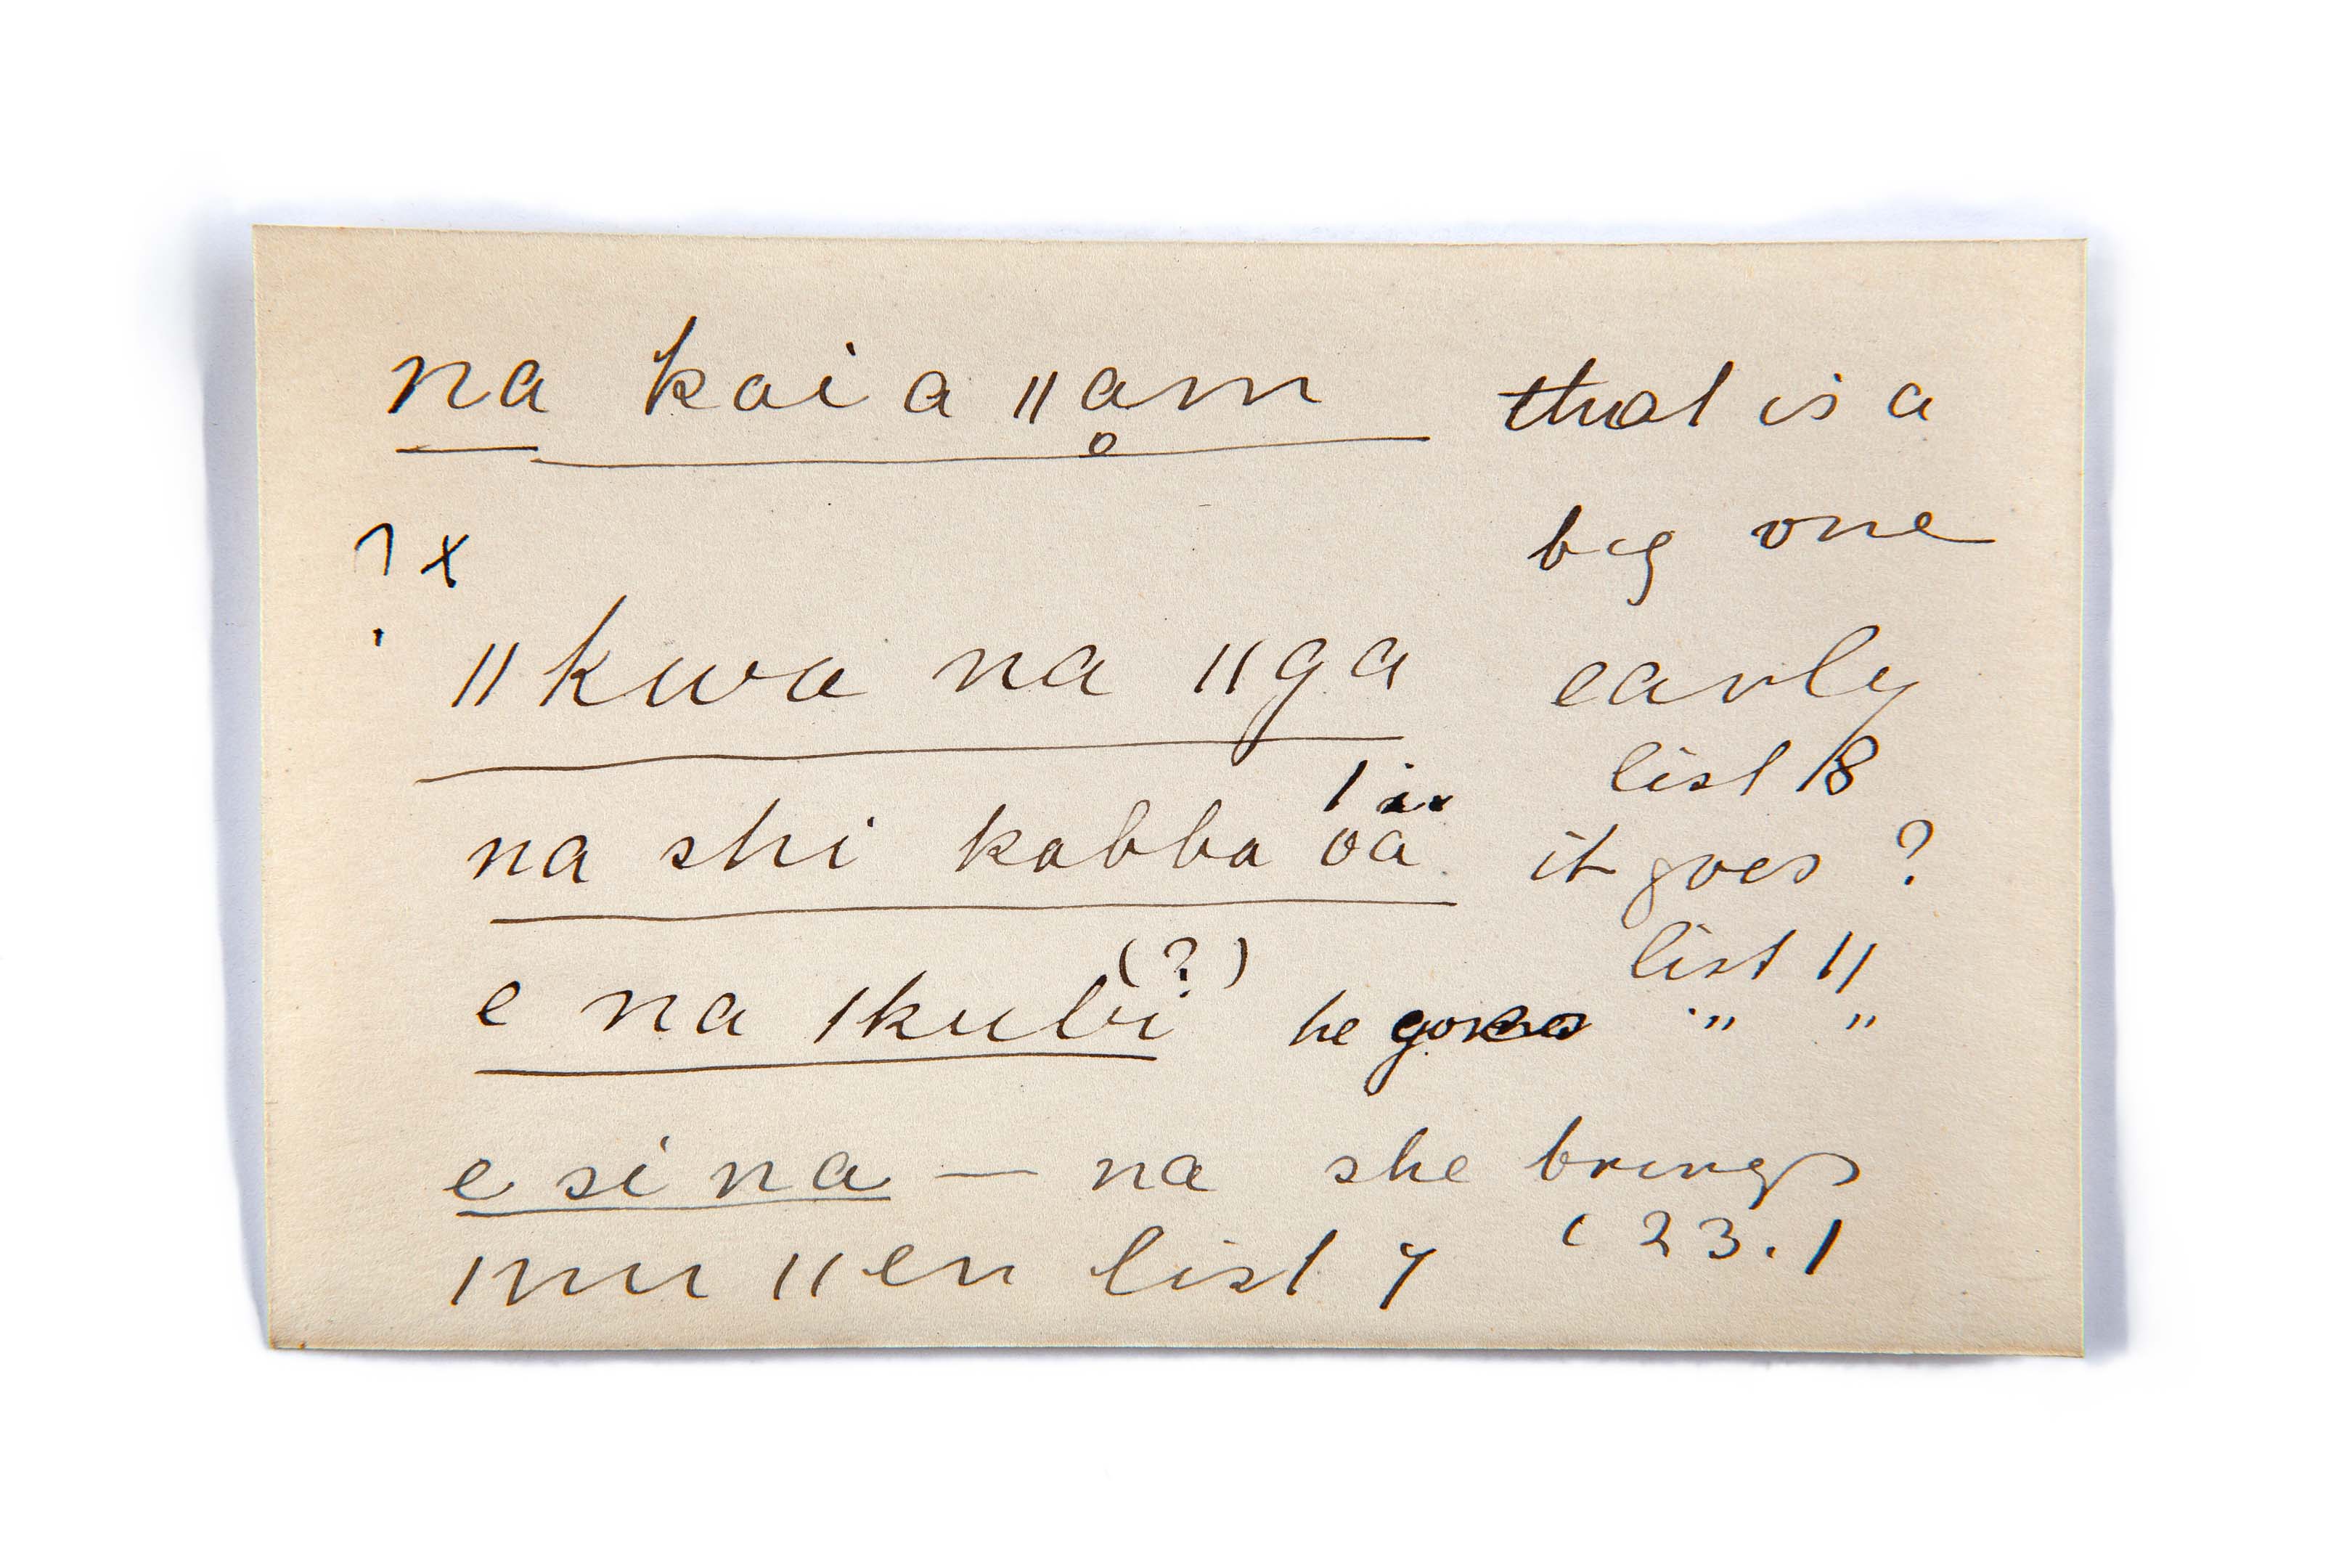 na kaia ‖am that is a
big one
? x
‖kwa na ‖ga early
list 18
na shi kabba oa it goes ?
list 11
(?)
e na |kubi he goes " "
e si na — na she brings
|nu ‖en list 7 C 23. 1